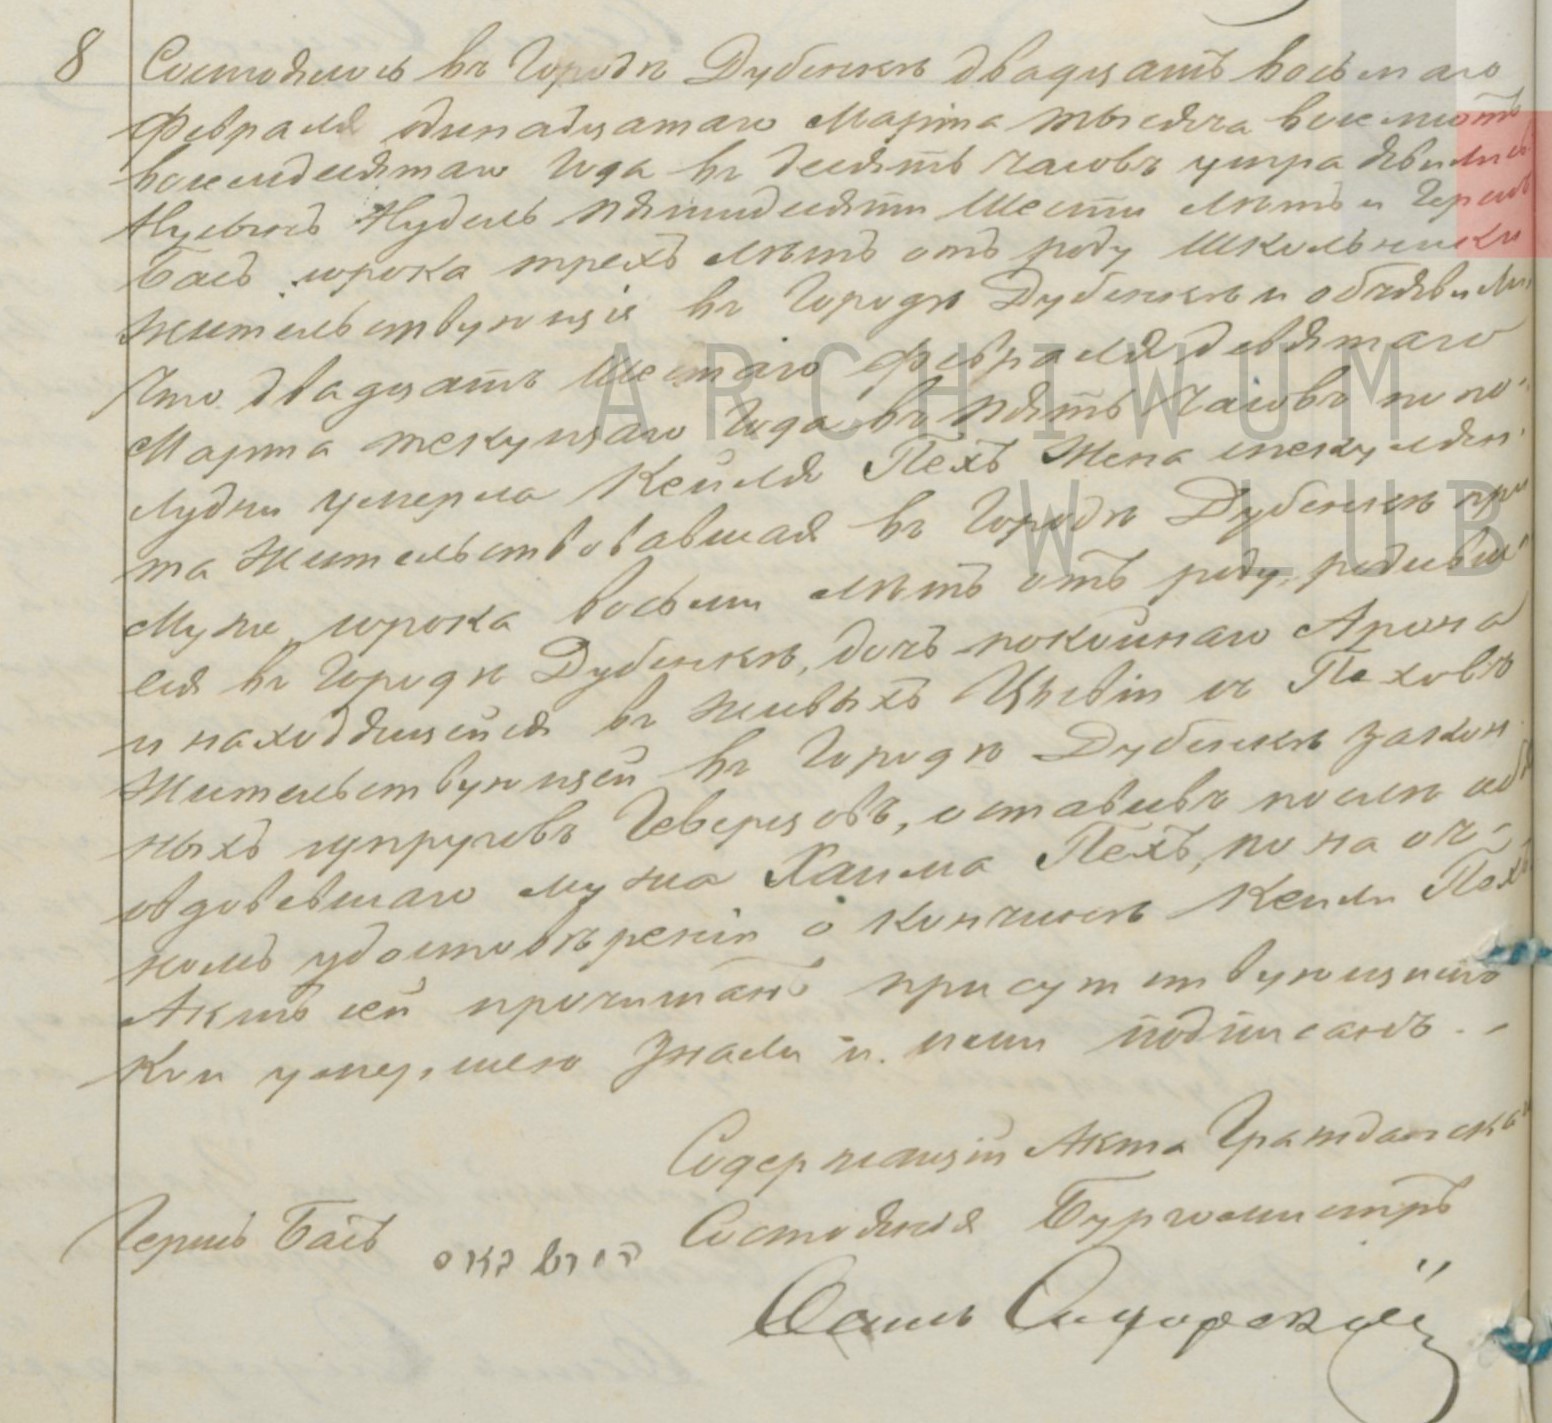 8 Состоялось въ Городѣ Дубенкѣ двадцать восьмаго
Февраля одинадцатаго Марта тысяча восемьсотъ
восемдесятаго года въ десять часовъ утра явились
Нудель пятидесяти шести лѣтъ и Гершъ
Басъ сорока трехъ лѣтъ отъ роду Школьники
жительствующіе въ Городѣ Дубенкѣ и объявили,
что двадцать шестаго февраля девятаго
Марта текущаго года въ пять часовъ попо-
лудни умерла Кейля Пехъ жена
та жительствовавшая въ Городѣ Дубенкѣ при
мужѣ, сорока восьми лѣтъ отъ роду, родивша-
ся въ Городѣ Дубенкѣ, дочь покойнаго Арона
и находящейся въ живыхъ Цивіи съ Пеховъ
жительствующей въ Городѣ Дубенкѣ закон-
ныхъ супруговъ Геверцовъ, оставивъ послѣ себя
овдовевшаго мужа Хаима Пехъ, по на оч-
номъ удостовѣреніи о кончинѣ Кейли Пехъ
Актъ сей прочитанъ присутствующимъ
кои умершею знали и нами подписанъ. -
Содержащій Акта Гражданскаго
Состоянія Бургомистръ
Гершъ Басъ הירש באס